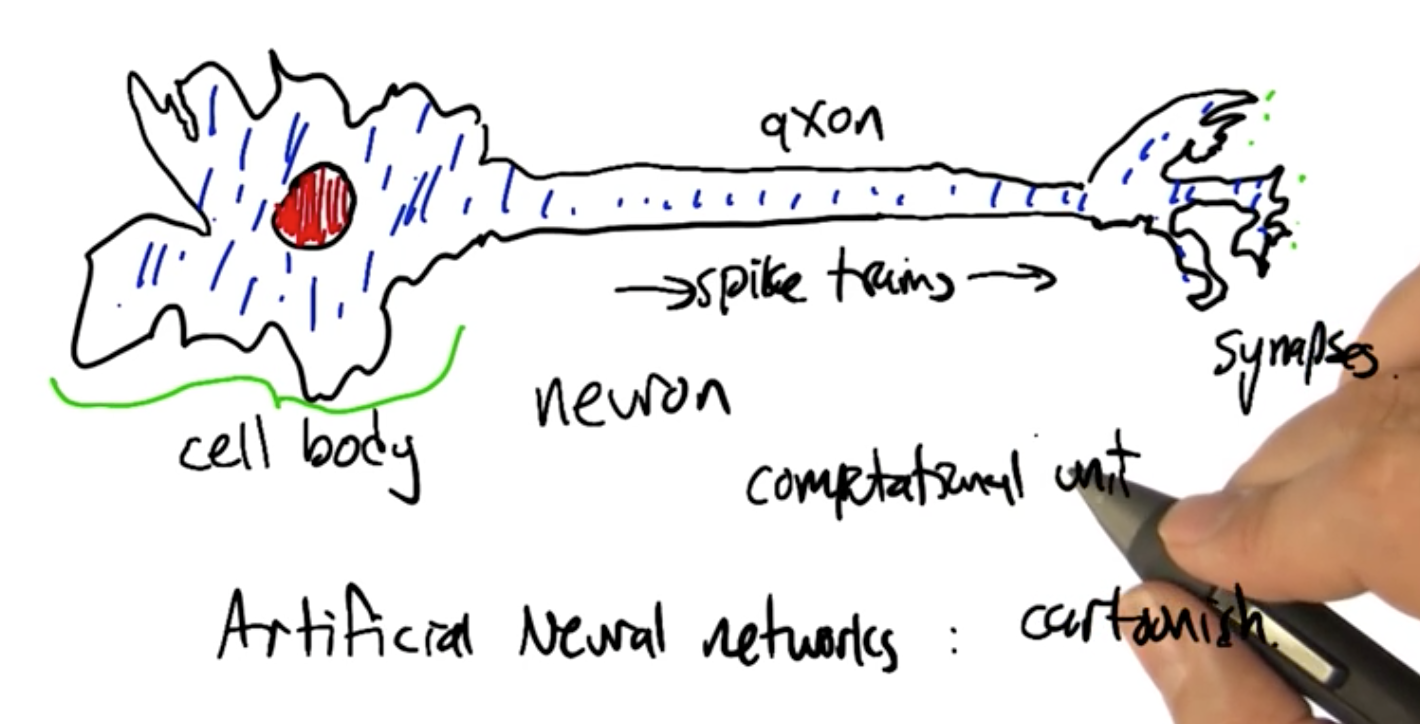 axon
→ spike trains →
synapses
neuron
cell body
computational unit
Artificial Neural networks : cartoonish.